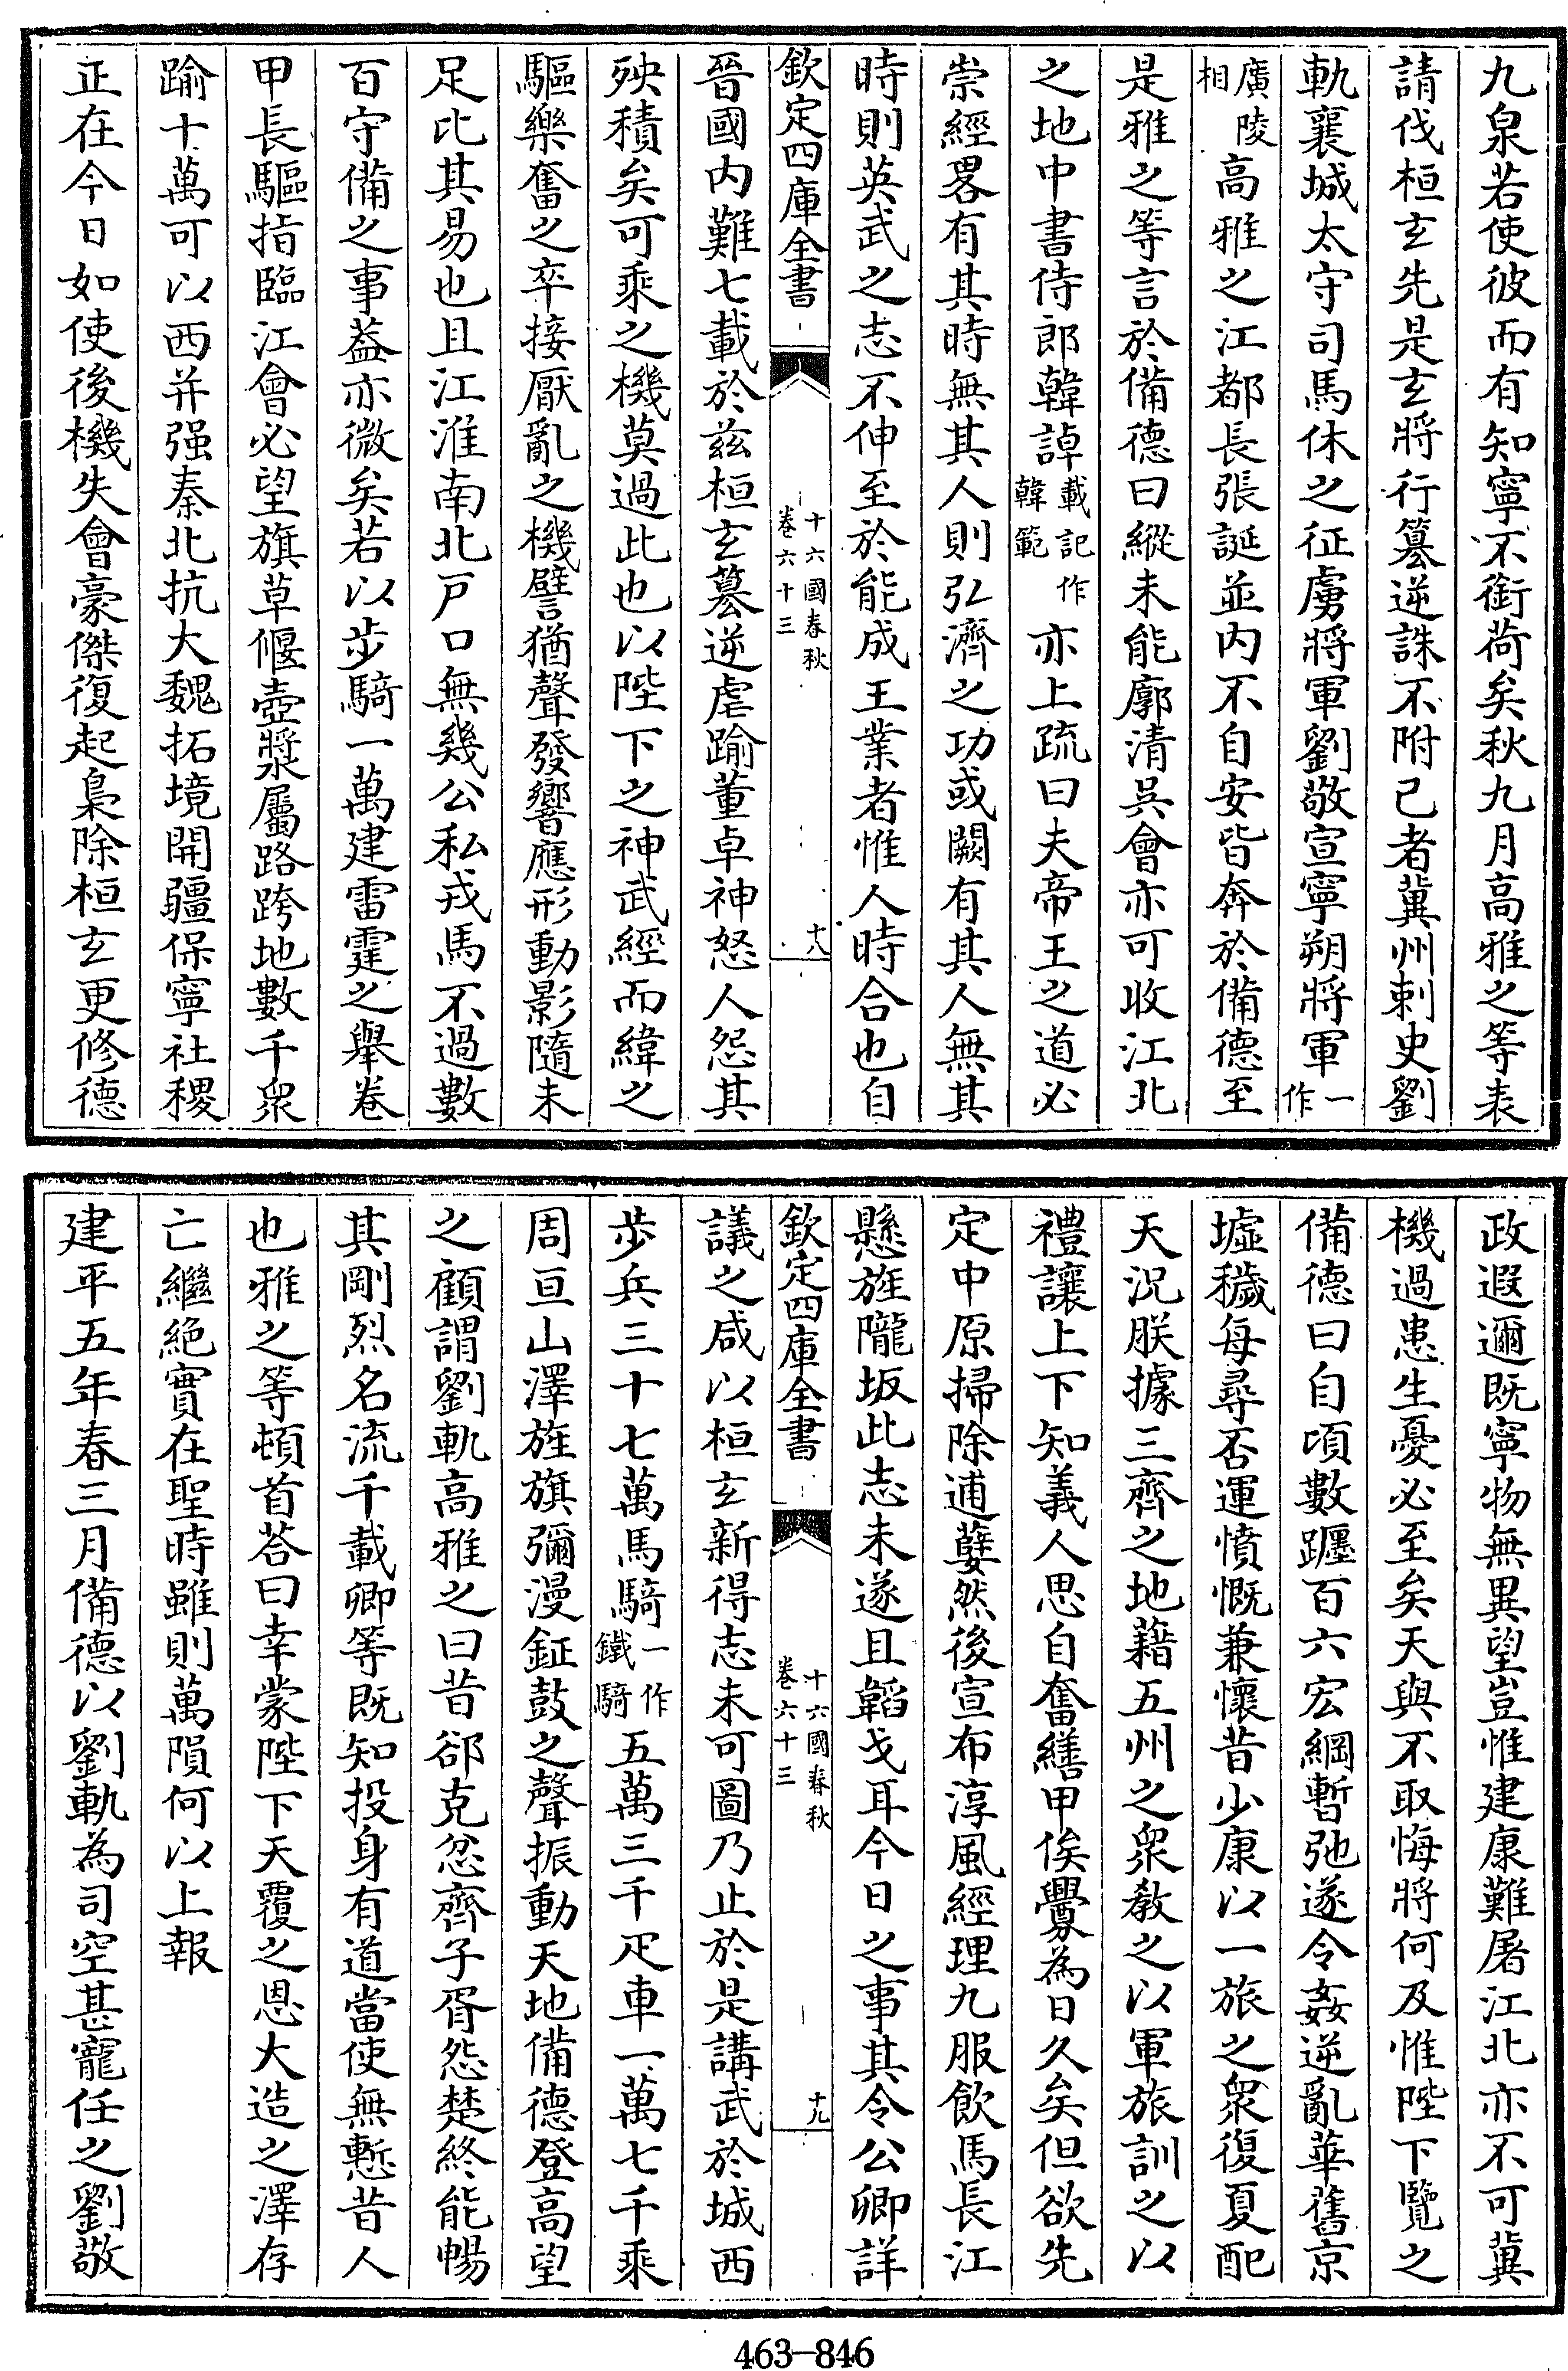 九泉若使彼而有知寧不銜荷矣秋九月高雅之等表
請伐桓玄先是玄將行篡逆誅不附己者冀州刺史劉
軌襄城太守司馬休之征虜將軍劉敬宣寧朔將軍一作
廣陵相高雅之江都長張誕並内不自安皆奔於備德至
是雅之等言於備德曰縱未能廓清吳會亦可收江北
之地中書侍郎韓𧨳載記作韓範亦上疏曰夫帝王之道必
崇經畧有其時無其人則弘濟之功或闕有其人無其
時則英武之志不伸至於能成王業者惟人時合也自
欽定四庫全書 十六國春秋卷六十三 十八
晉國内難七載於兹桓玄簒逆虐踰董卓神怒人怨其
殃積矣可乘之機莫過此也以陛下之神武經而緯之
驅樂奮之卒接厭亂之機譬猶聲發響應形動影隨未
足比其易也且江淮南北戸口無幾公私戎馬不過數
百守備之事葢亦微矣若以步騎一萬建雷霆之舉卷
甲長驅指臨江會必望旗草偃壺漿屬路跨地數千衆
踰十萬可以西并强秦北抗大魏拓境開疆保寧社稷
正在今日如使後機失會豪傑復起梟除桓玄更修德
政遐邇既寧物無異望豈惟建康難屠江北亦不可冀
機過患生憂必至矣天與不取悔將何及惟陛下覽之
備德曰自頃數躔百六宏綱暫弛遂令姦逆亂華舊京
墟穢每尋否運憤慨兼懷昔少康以一旅之衆復夏配
天況朕據三齊之地藉五州之衆教之以軍旅訓之以
禮讓上下知義人思自奮繕甲俟釁為日久矣但欲先
定中原掃除逋孽然後宣布淳風經理九服飲馬長江
懸旌隴坂此志未遂且韜戈耳今日之事其令公卿詳
欽定四庫全書 十六國春秋卷六十三 十九
議之咸以桓玄新得志未可圖乃止於是講武於城西
步兵三十七萬馬騎一作鐵騎五萬三千疋車一萬七千乘
周亘山澤旌旗彌漫鉦鼓之聲振動天地備德登高望
之顧謂劉軌高雅之曰昔郤克忿齊子胥怨楚終能暢
其剛烈名流千載卿等既知投身有道當使無慙昔人
也雅之等頓首荅曰幸蒙陛下天覆之恩大造之澤存
亡繼絶實在聖時雖則萬隕何以上報
建平五年春三月備德以劉軌為司空甚寵任之劉敬
463-846